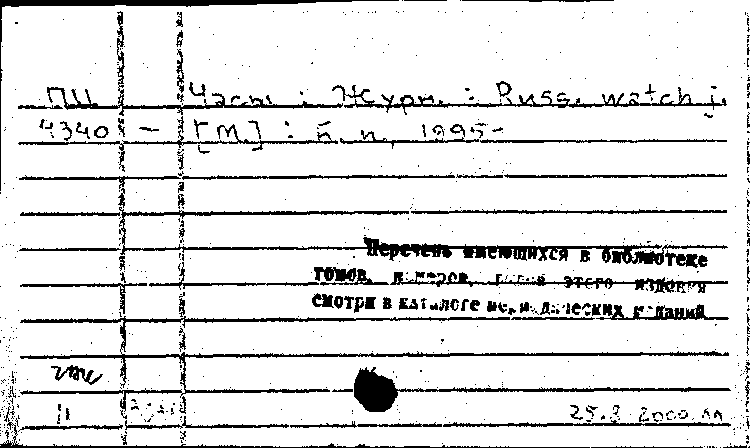 ПЦ Часы : Журн. : Russ. watch j.
4340 – [М.] : Б. и., 1995-
Перечень имеющихся в библиотеке
томов, номеров, годов этого издания
смотри в каталоге периодических изданий
11 25.8 2000